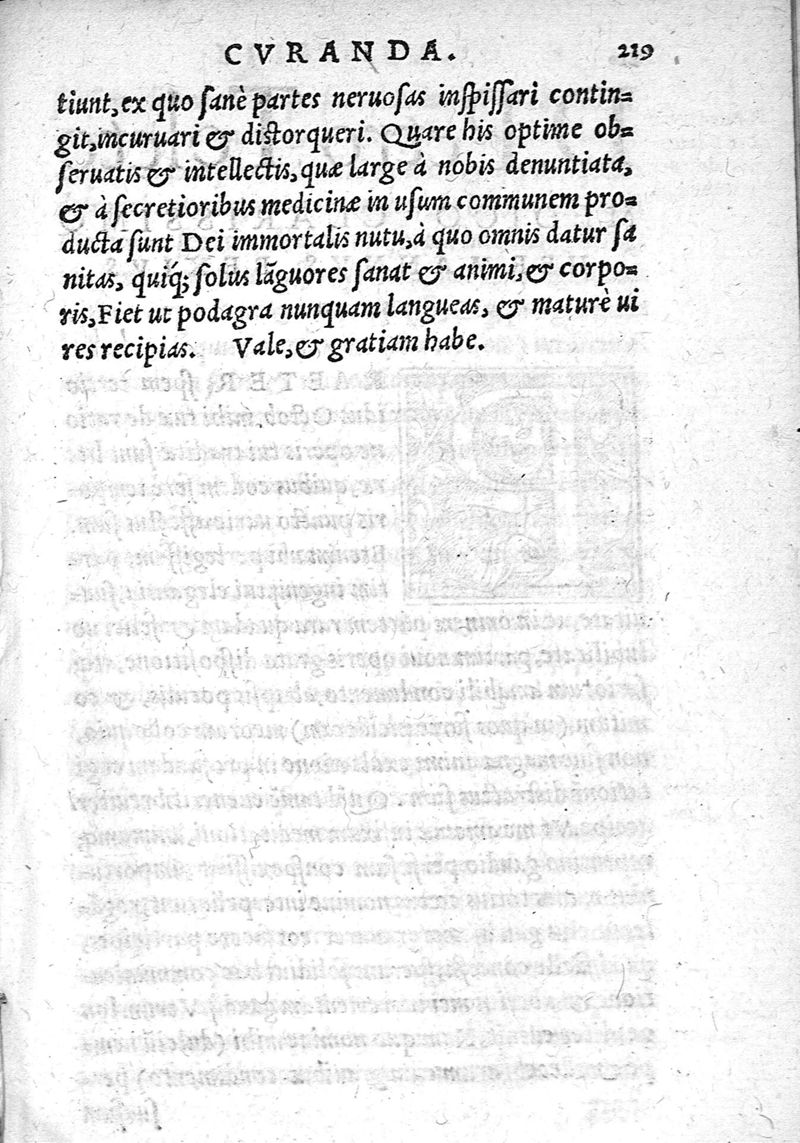 CVRANDA. 219
tiunt, ex quo sanè partes neruosas inspissari contin=
git, incuruari & distorqueri. Quare his optime ob=
seruatis & intellectis, quæ large à nobis denuntiata,
& à secretioribus medicinæ in usum communem pro=
ducta sunt Dei immortalis nutu, à quo omnis datur sa
nitas, quiq́; solus lāguores sanat & animi, & corpo=
ris, Fiet ut podagra nunquam langueas, & maturè ui
res recipias. Vale, & gratiam habe.